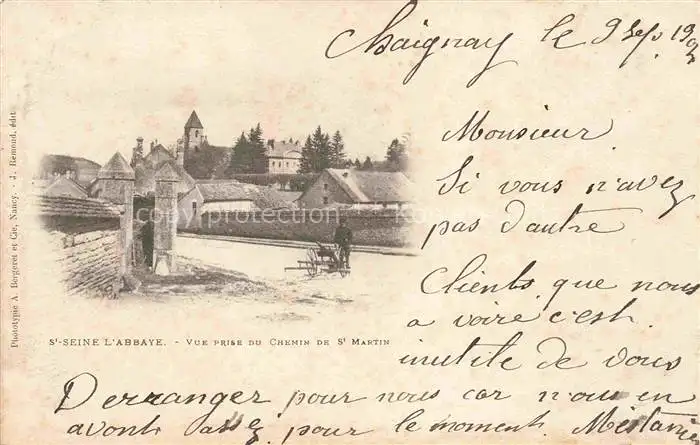 Chaignay le 9 Sep. 190
Monsieur
Si vous n'avez
pas d'autre
Clients que nous
a voire c'est
inutile de vous
Derranger pour nous car nous en
avont assez pour le moment
Phototypie A. Bergeret et Cie, Nancy. - J. Remond, édit.
St-SEINE L'ABBAYE. - VUE PRISE DU CHEMIN DE St MARTIN